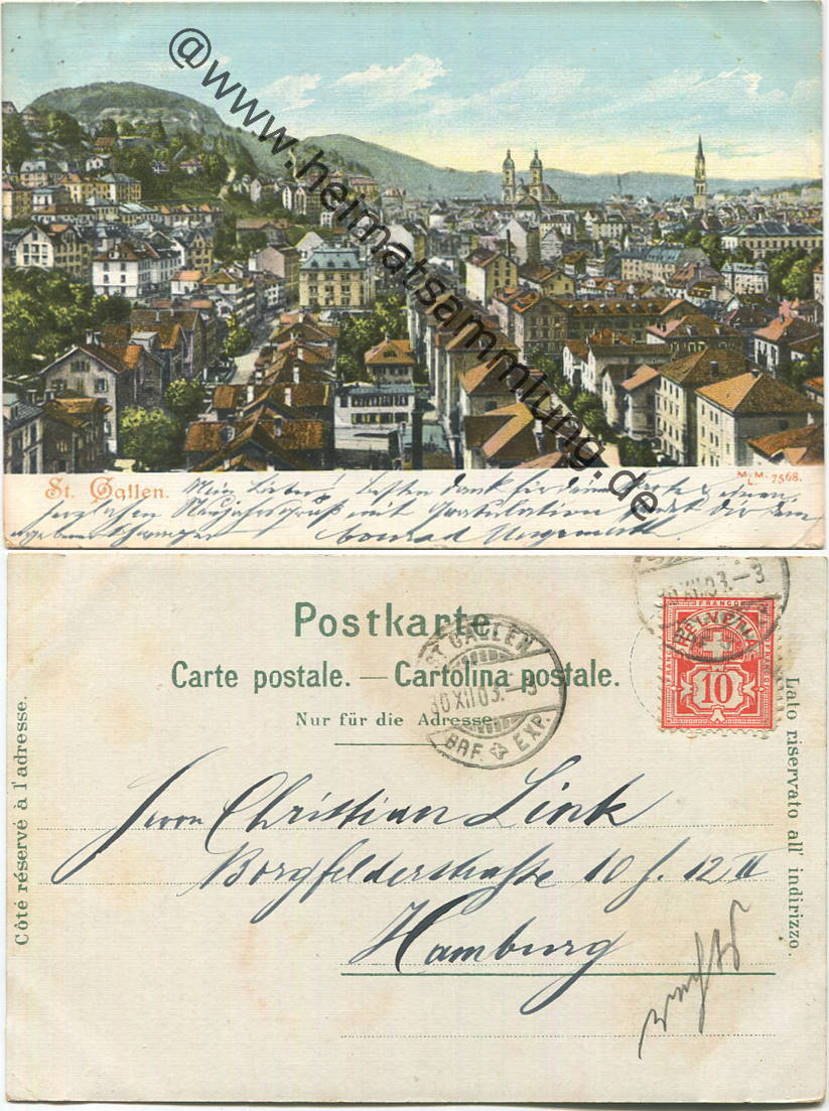 @www.heimatsammlung.de
St. Gallen. Mein Lieber! Besten Dank für deine Karte &
herzlichen Neujahrsgruß mit Gratulation
Conrad
M. M. L. 7568.
Postkarte.
Carte postale. — Cartolina postale.
Nur für die Adresse.
Côté réservé à l'adresse.
Lato riservato all' indirizzo.
ST GALLEN
30 XII 03.–3
BRF. EXP.
XII.03.–3
FRANCO
HELVETIA
10
Herrn Christian Link
Borgfelderstraße 10 f. 12 II
Hamburg